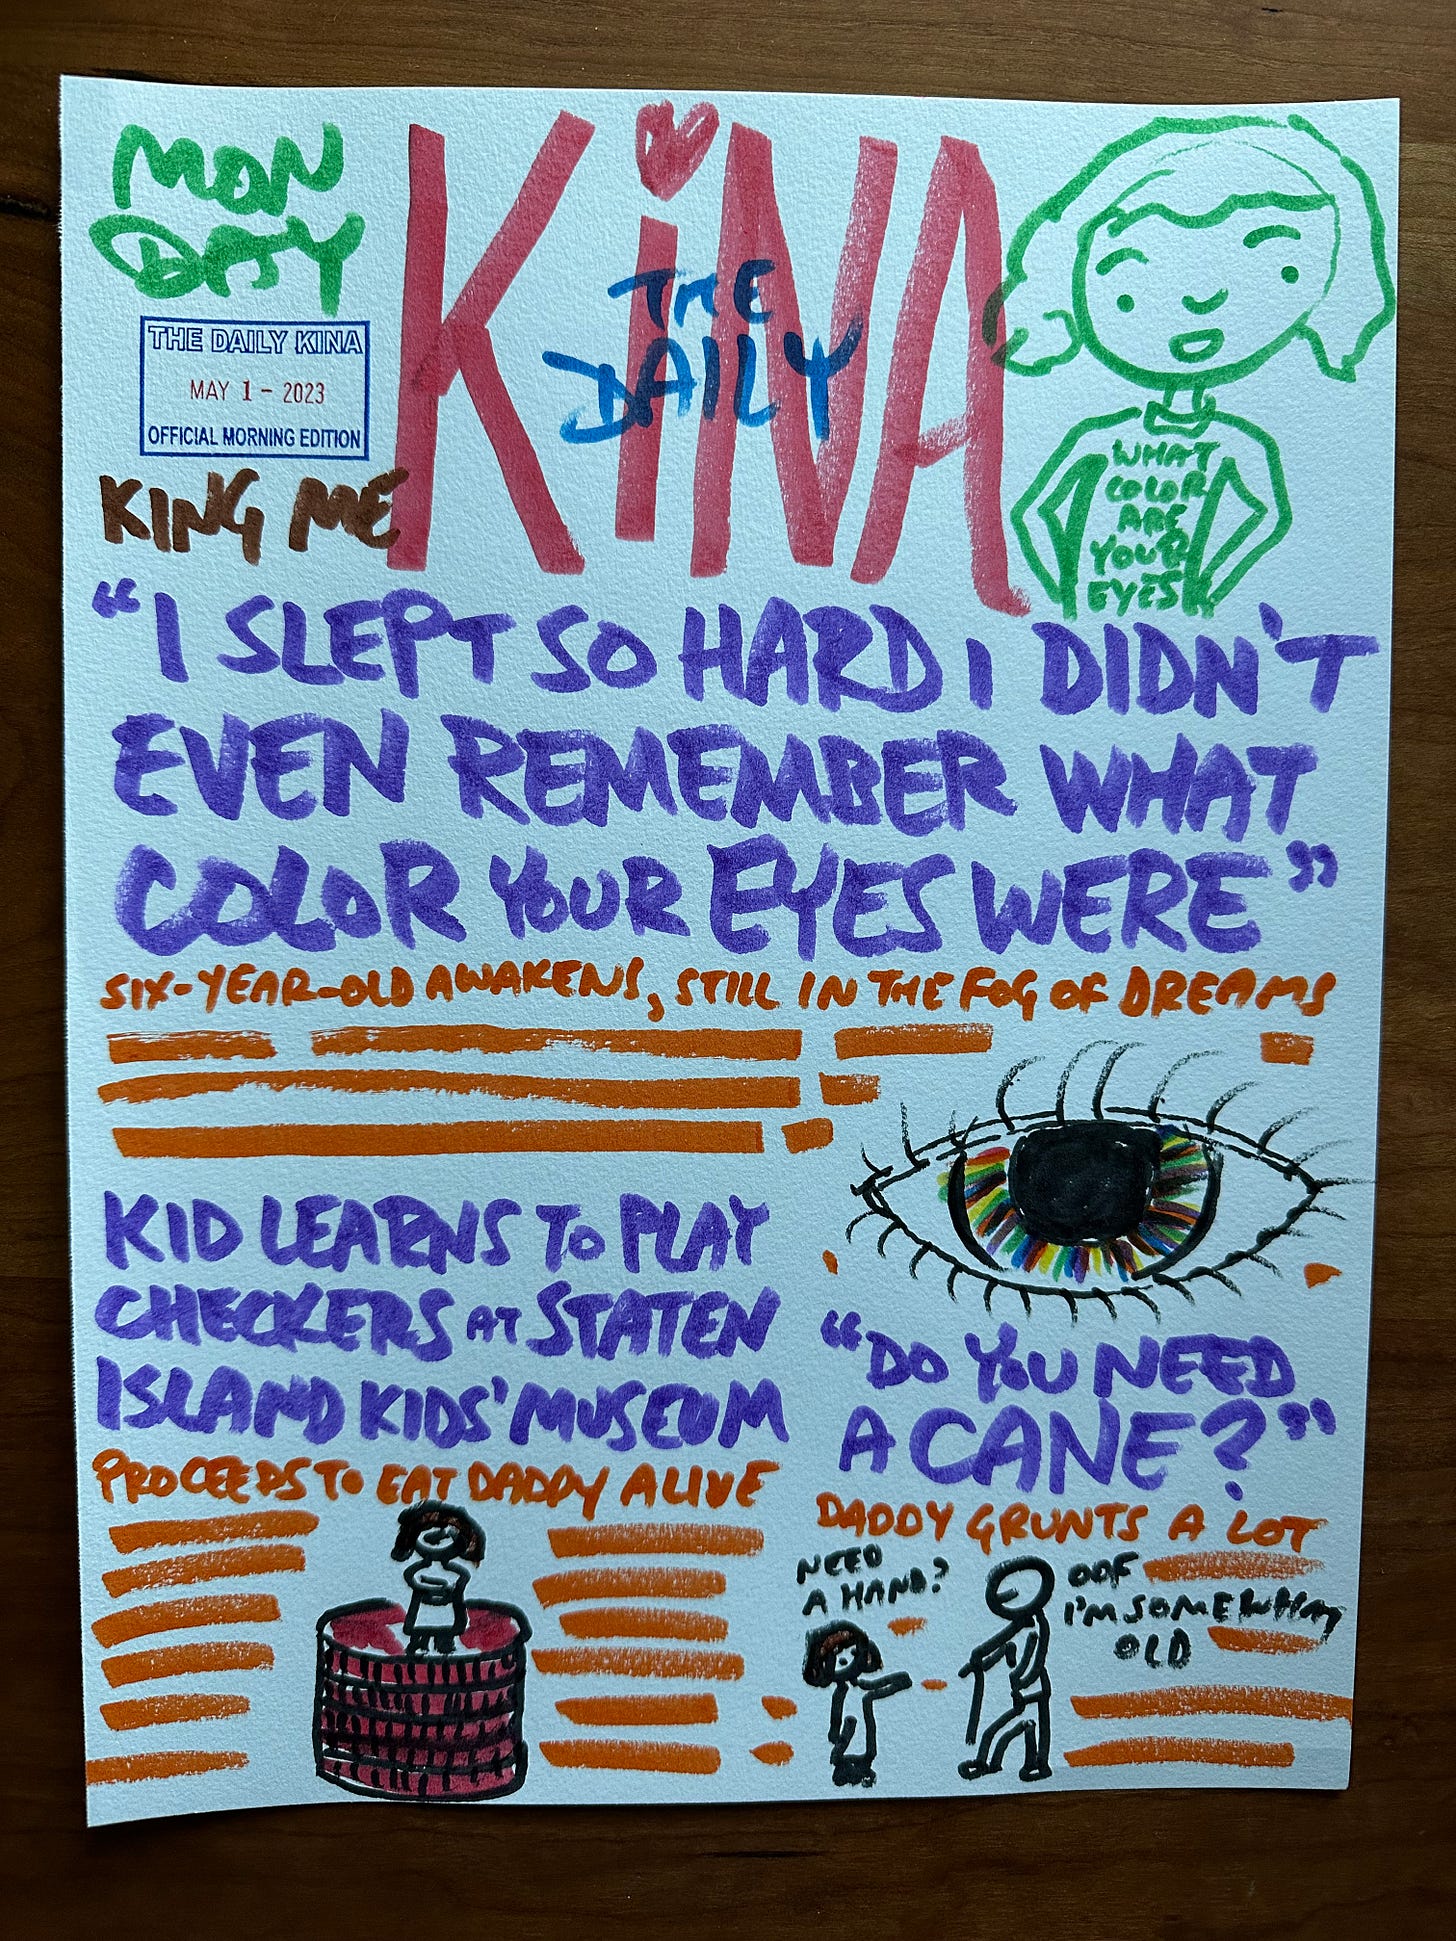 MON
DAY
THE DAILY KINA
MAY 1 - 2023
OFFICIAL MORNING EDITION
KING ME
KiNA
THE
DAILY
WHAT
COLOR
ARE
YOUR
EYES
“I SLEPT SO HARD I DIDN'T
EVEN REMEMBER WHAT
COLOR YOUR EYES WERE”
SIX-YEAR-OLD AWAKENS, STILL IN THE FOG OF DREAMS
KID LEARNS TO PLAY
CHECKERS AT STATEN
ISLAND KIDS' MUSEUM
PROCEEDS TO EAT DADDY ALIVE
“DO YOU NEED
A CANE?”
DADDY GRUNTS A LOT
NEED
A HAND?
OOF
I'M SOMEWHAT
OLD